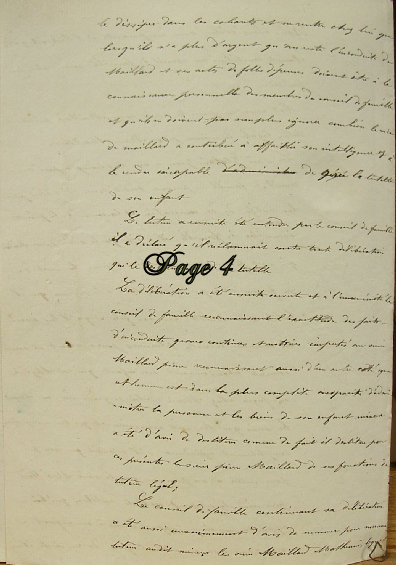 le dissipe dans les cabarets et ne rentre chez lui que
lorsqu'il n'a plus d'argent que
Maillard et ses actes de folles dépenses doivent être à la
connaissance personnelle des membres du conseil de famille
et qu'ils ne doivent pas non plus ignorer combien le
de maillard a contribué à affaiblir son intelligence et à
le rendre incapable de gérer la tutelle
de son enfant
Le tuteur a ensuite été entendu par le conseil de famille
il a déclaré qu'il contre toute délibération
qui le tutelle
Page 4
La délibération a été ensuite ouverte et à l'unanimité le
conseil de famille reconnaissant l'exactitude des faits
d'inconduite graves continus et notoires imputés au sieur
Maillard pierre reconnaissant aussi d'un autre côté que
cet homme est dans la plus complète incapacité
la personne et les biens de son enfant mineur
a été d'avis de destituer comme de fait il destitue par
ces présentes le sieur pierre Maillard de ses fonctions de
tuteur légal;
Le conseil de famille continuant sa délibération
a été aussi unanimement d'avis de nommer pour nouveau
tuteur audit mineur le sieur Maillard Mathurin